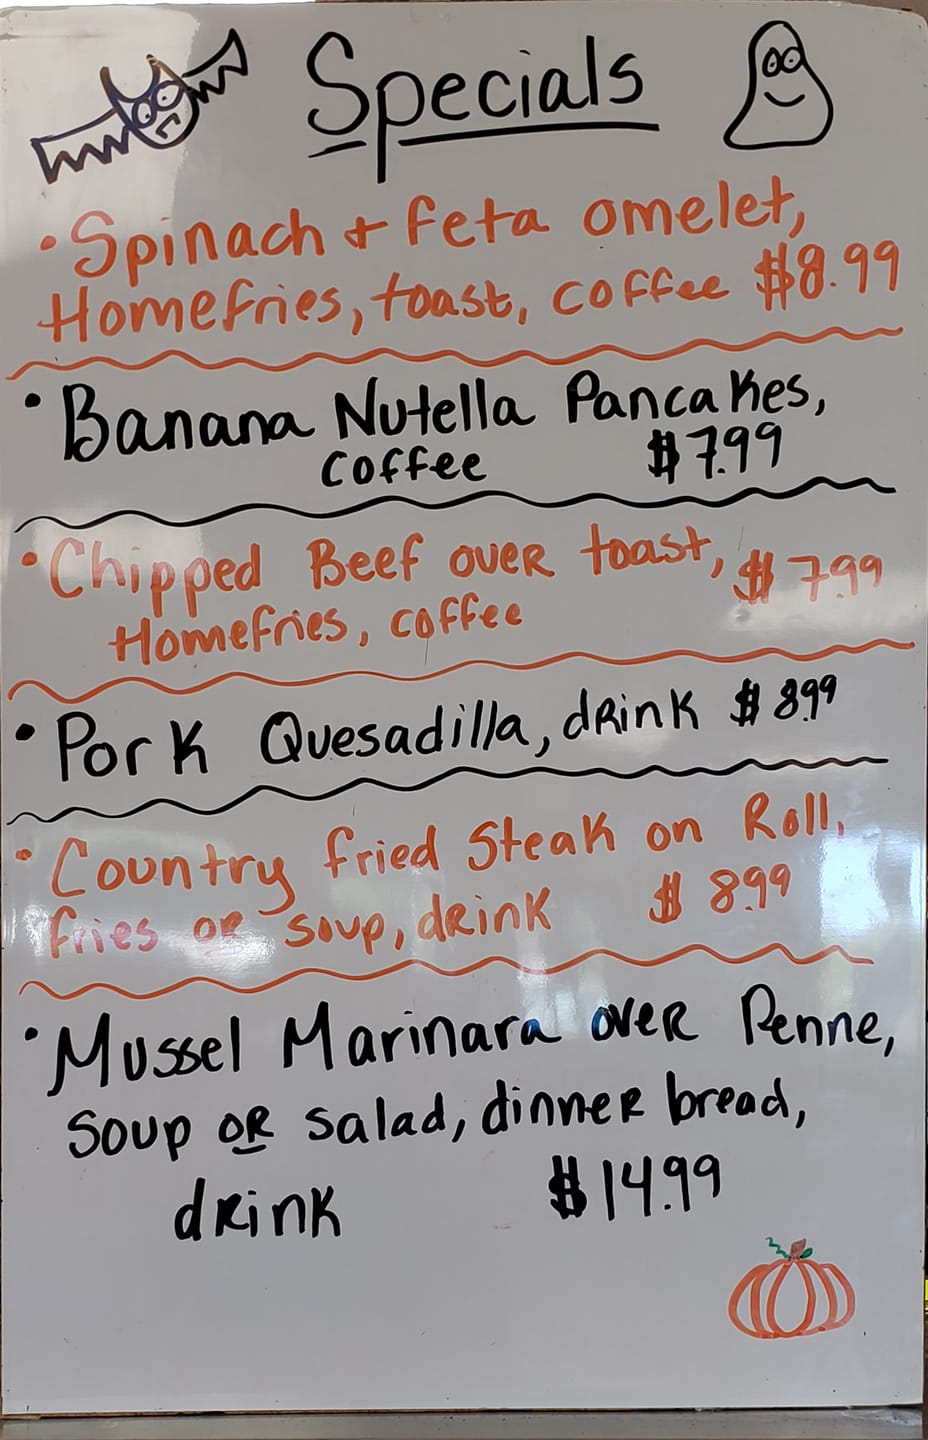 Specials
• Spinach + feta omelet,
Homefries, toast, coffee $8.99
• Banana Nutella Pancakes,
coffee $7.99
• Chipped Beef over toast, $7.99
Homefries, coffee
• Pork Quesadilla, drink $8.99
• Country fried Steak on Roll,
fries or soup, drink $8.99
• Mussel Marinara over Penne,
Soup or salad, dinner bread,
drink $14.99